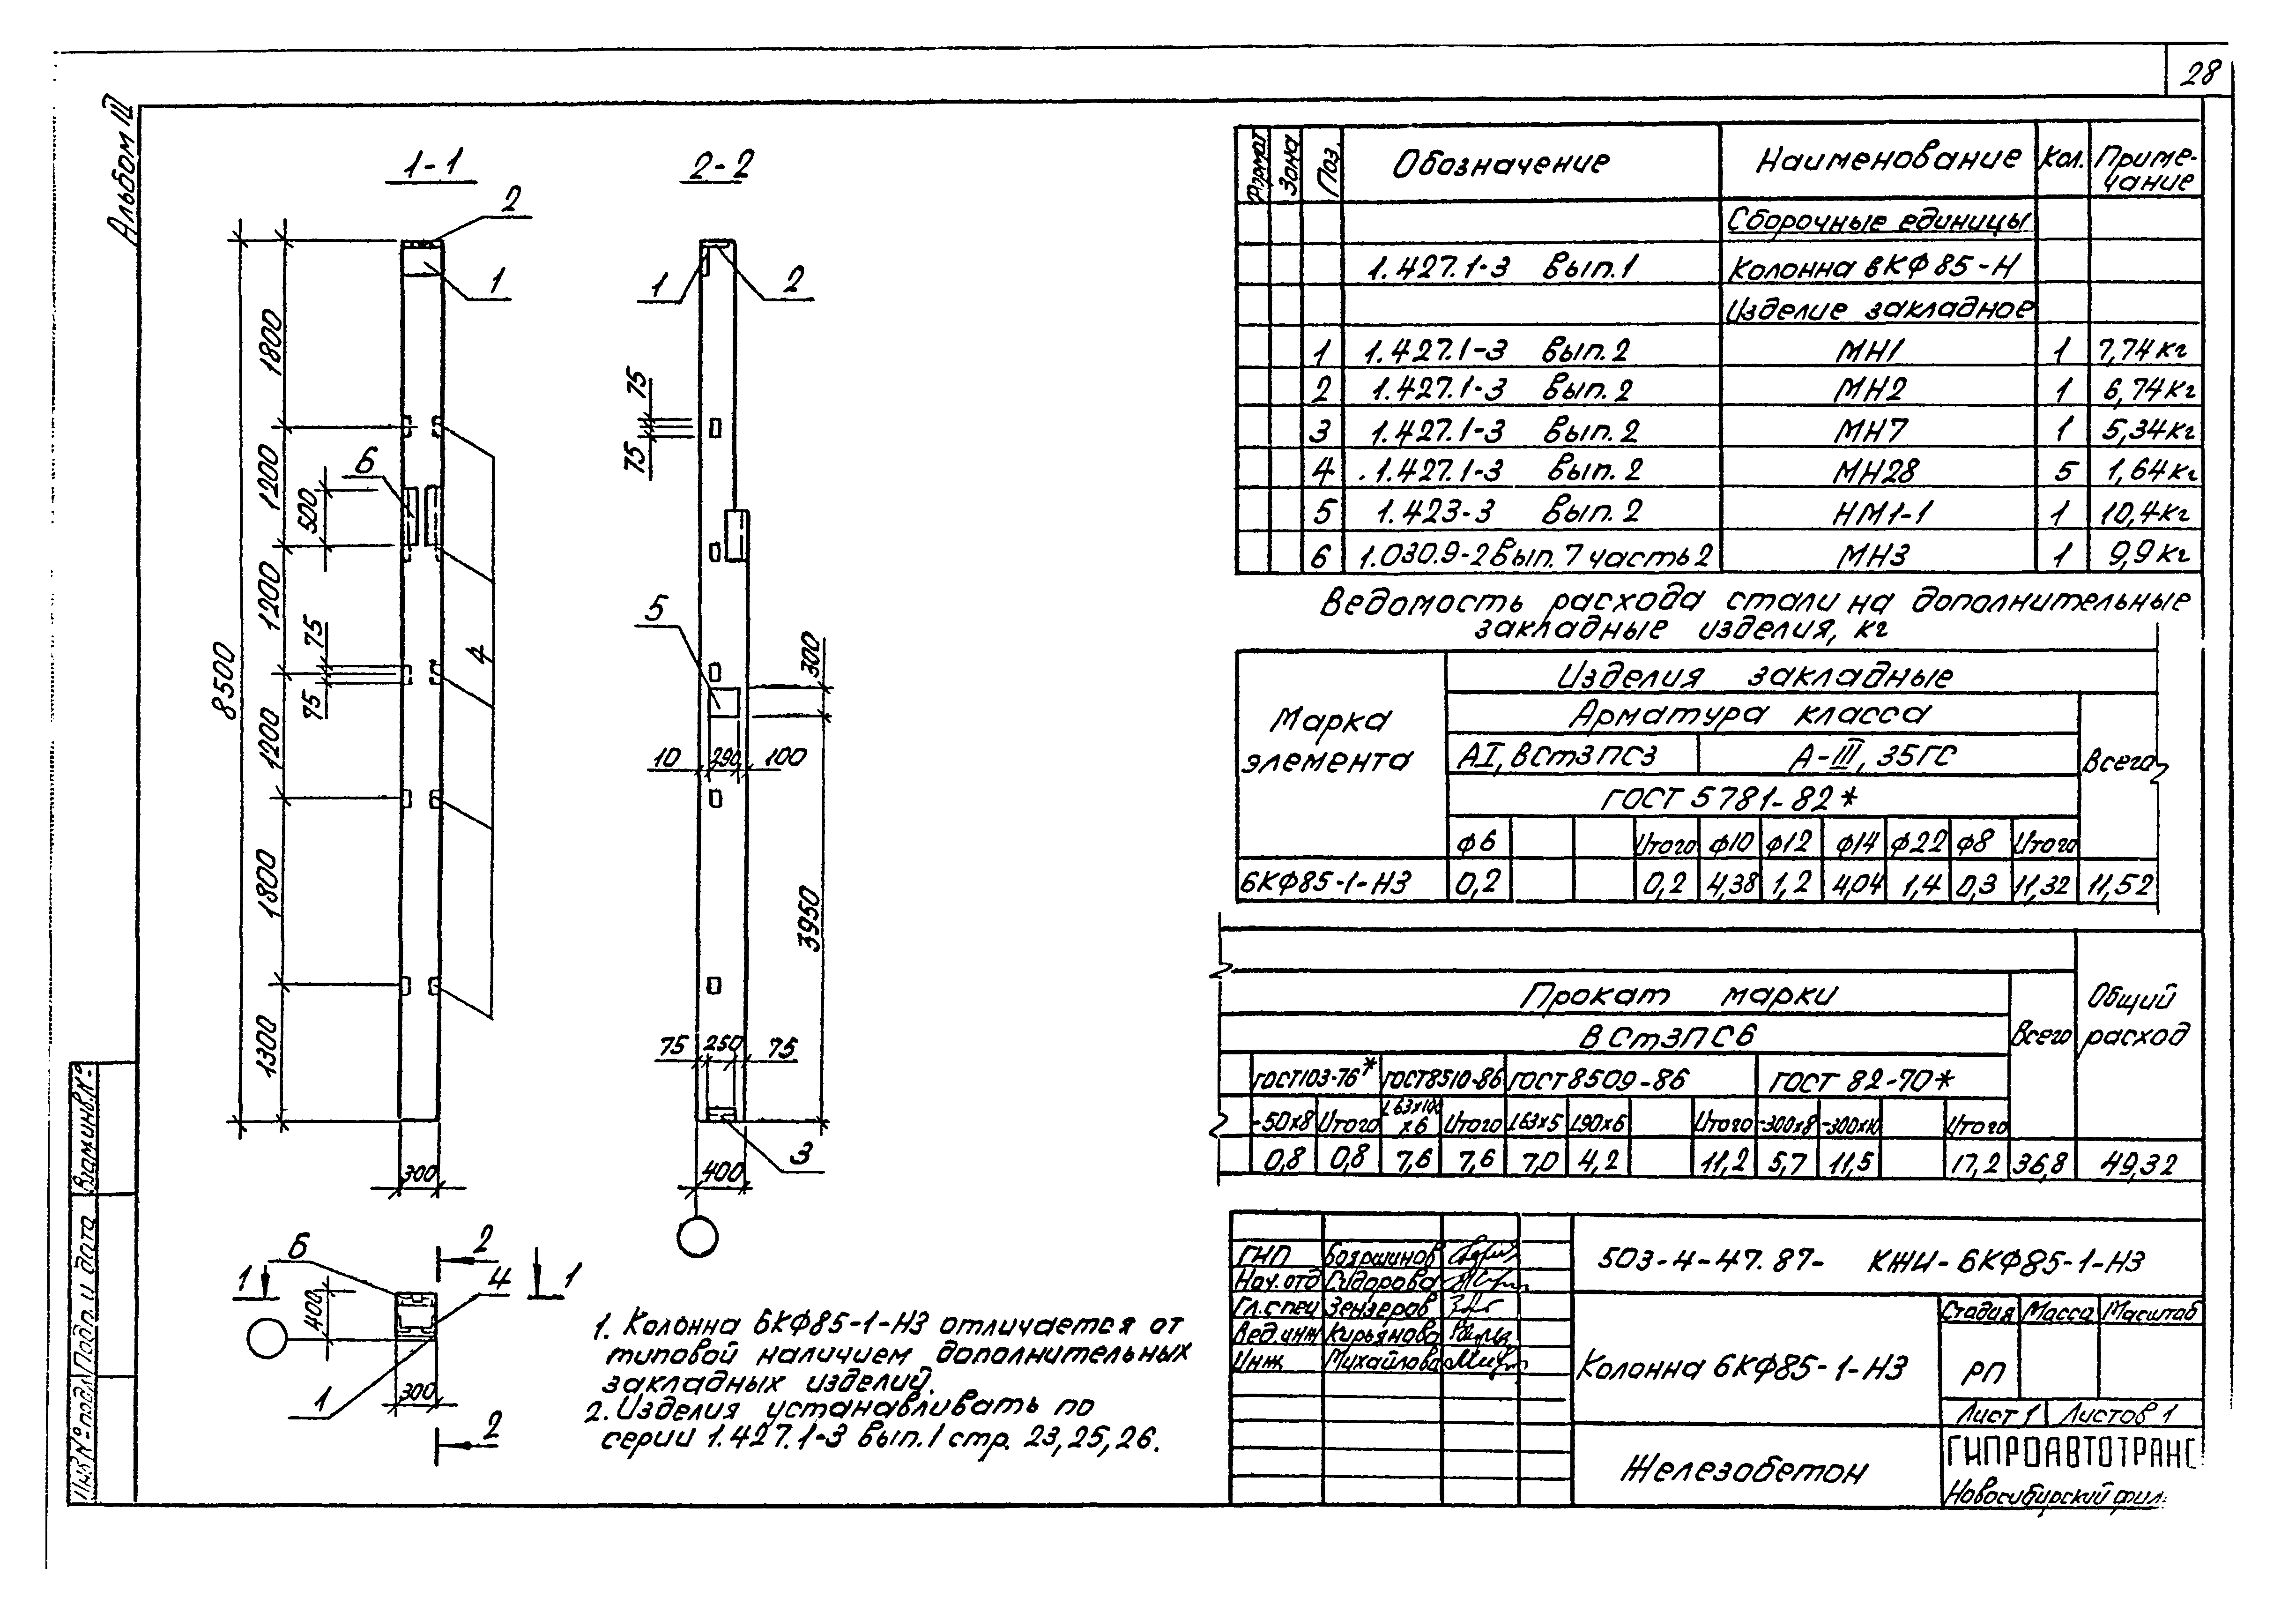 28
Альбом III
1-1
2-2
2
1
1800
1200
1200
1200
1800
1300
8500
500
75
75
6
4
300
1
2
75
75
5
300
10 290 100
3950
75 250 75
3
400
6
2
1
1
4
400
300
1
2
1. Колонна 6КФ85-1-Н3 отличается от
типовой наличием дополнительных
закладных изделий.
2. Изделия устанавливать по
серии 1.427.1-3 вып.1 стр. 23,25,26.
Формат Зона Поз. Обозначение Наименование Кол. Приме-
чание
Сборочные единицы
1.427.1-3 вып.1 Колонна 6КФ85-Н
Изделие закладное
1 1.427.1-3 вып.2 МН1 1 7,74кг
2 1.427.1-3 вып.2 МН2 1 6,74кг
3 1.427.1-3 вып.2 МН7 1 5,34кг
4 1.427.1-3 вып.2 МН28 5 1,64кг
5 1.423-3 вып.2 НМ1-1 1 10,4кг
6 1.030.9-2 вып.7 часть 2 МН3 1 9,9кг
Ведомость расхода стали на дополнительные
закладные изделия, кг
Марка
элемента
Изделия закладные
Арматура класса
АI, ВСт3ПС3 А-III, 35ГС Всего
ГОСТ 5781-82*
ф6 Итого ф10 ф12 ф14 ф22 ф8 Итого
6КФ85-1-Н3 0,2 0,2 4,38 1,2 4,04 1,4 0,3 11,32 11,52
Прокат марки
Общий
расход
ВСт3ПС6 Всего
ГОСТ103-76* ГОСТ8510-86 ГОСТ8509-86 ГОСТ 82-70*
-50х8 Итого L63х100
х6 Итого L63х5 L90х6 Итого -300х8 -300х10 Итого
0,8 0,8 7,6 7,6 7,0 4,2 11,2 5,7 11,5 17,2 36,8 49,32
ГИП Бояршинов
Нач.отд Сидорова
Гл.спец Зензеров
Вед.инж Кирьянова
Инж Михайлова
503-4-47.87- КЖИ-6КФ85-1-Н3
Колонна 6КФ85-1-Н3
Стадия Масса Масштаб
РП
Лист 1 Листов 1
Железобетон
ГИПРОАВТОТРАНС
Новосибирский фил.
Взам.инв.№
Подп. и дата
Инв.№ подл